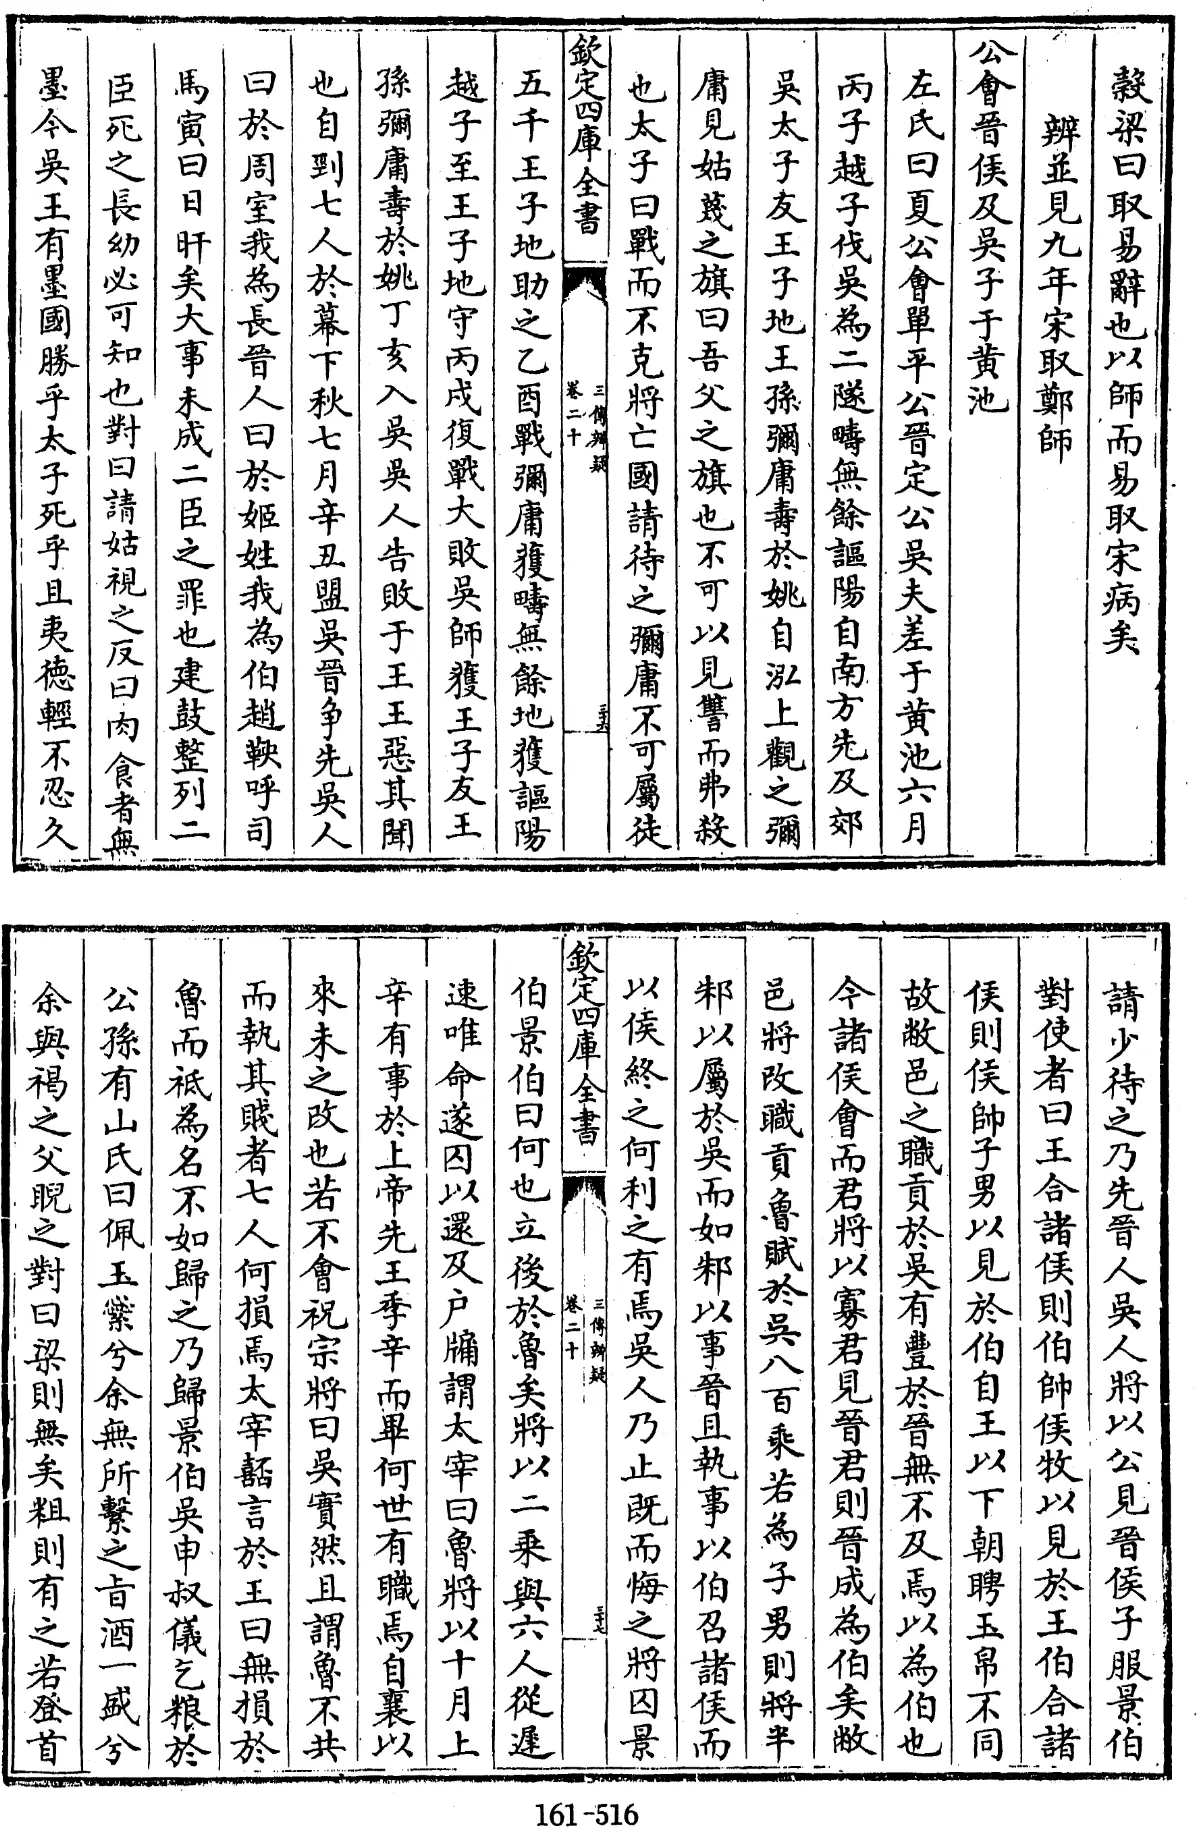 穀梁曰取易辭也以師而易取宋病矣
辨並見九年宋取鄭師
公會晉侯及吳子于黄池
左氏曰夏公會單平公晉定公吳夫差于黄池六月
丙子越子伐吳為二隧疇無餘謳陽自南方先及郊
吳太子友王子地王孫彌庸壽於姚自泓上觀之彌
庸見姑蔑之旗曰吾父之旗也不可以見讐而弗殺
也太子曰戰而不克將亡國請待之彌庸不可屬徒
欽定四庫全書
三傳辨疑
卷二十
三十六
五千王子地助之乙酉戰彌庸獲疇無餘地獲謳陽
越子至王子地守丙戌復戰大敗吳師獲王子友王
孫彌庸壽於姚丁亥入吳吳人告敗于王王惡其聞
也自剄七人於幕下秋七月辛丑盟吳晉争先吳人
曰於周室我為長晉人曰於姬姓我為伯趙鞅呼司
馬寅曰日旰矣大事未成二臣之罪也建鼓整列二
臣死之長幼必可知也對曰請姑視之反曰肉食者無
墨今吳王有墨國勝乎太子死乎且夷徳輕不忍久
請少待之乃先晉人吳人將以公見晉侯子服景伯
對使者曰王合諸侯則伯帥侯牧以見於王伯合諸
侯則侯帥子男以見於伯自王以下朝聘玉帛不同
故敝邑之職貢於吳有豐於晉無不及焉以為伯也
今諸侯會而君將以寡君見晉君則晉成為伯矣敝
邑將改職貢魯賦於吳八百乘若為子男則將半
邾以屬於吳而如邾以事晉且執事以伯召諸侯而
以侯終之何利之有焉吳人乃止既而悔之將囚景
欽定四庫全書
三傳辨疑
卷二十
三十七
伯景伯曰何也立後於魯矣將以二乘與六人從遲
速唯命遂囚以還及户牖謂太宰曰魯將以十月上
辛有事於上帝先王季辛而畢何世有職焉自襄以
來未之改也若不會祝宗將曰吳實然且謂魯不共
而執其賤者七人何損焉太宰嚭言於王曰無損於
魯而祇為名不如歸之乃歸景伯吳申叔儀乞粮於
公孫有山氏曰佩玉縈兮余無所繫之旨酒一盛兮
余與褐之父睨之對曰梁則無矣粗則有之若登首
161-516